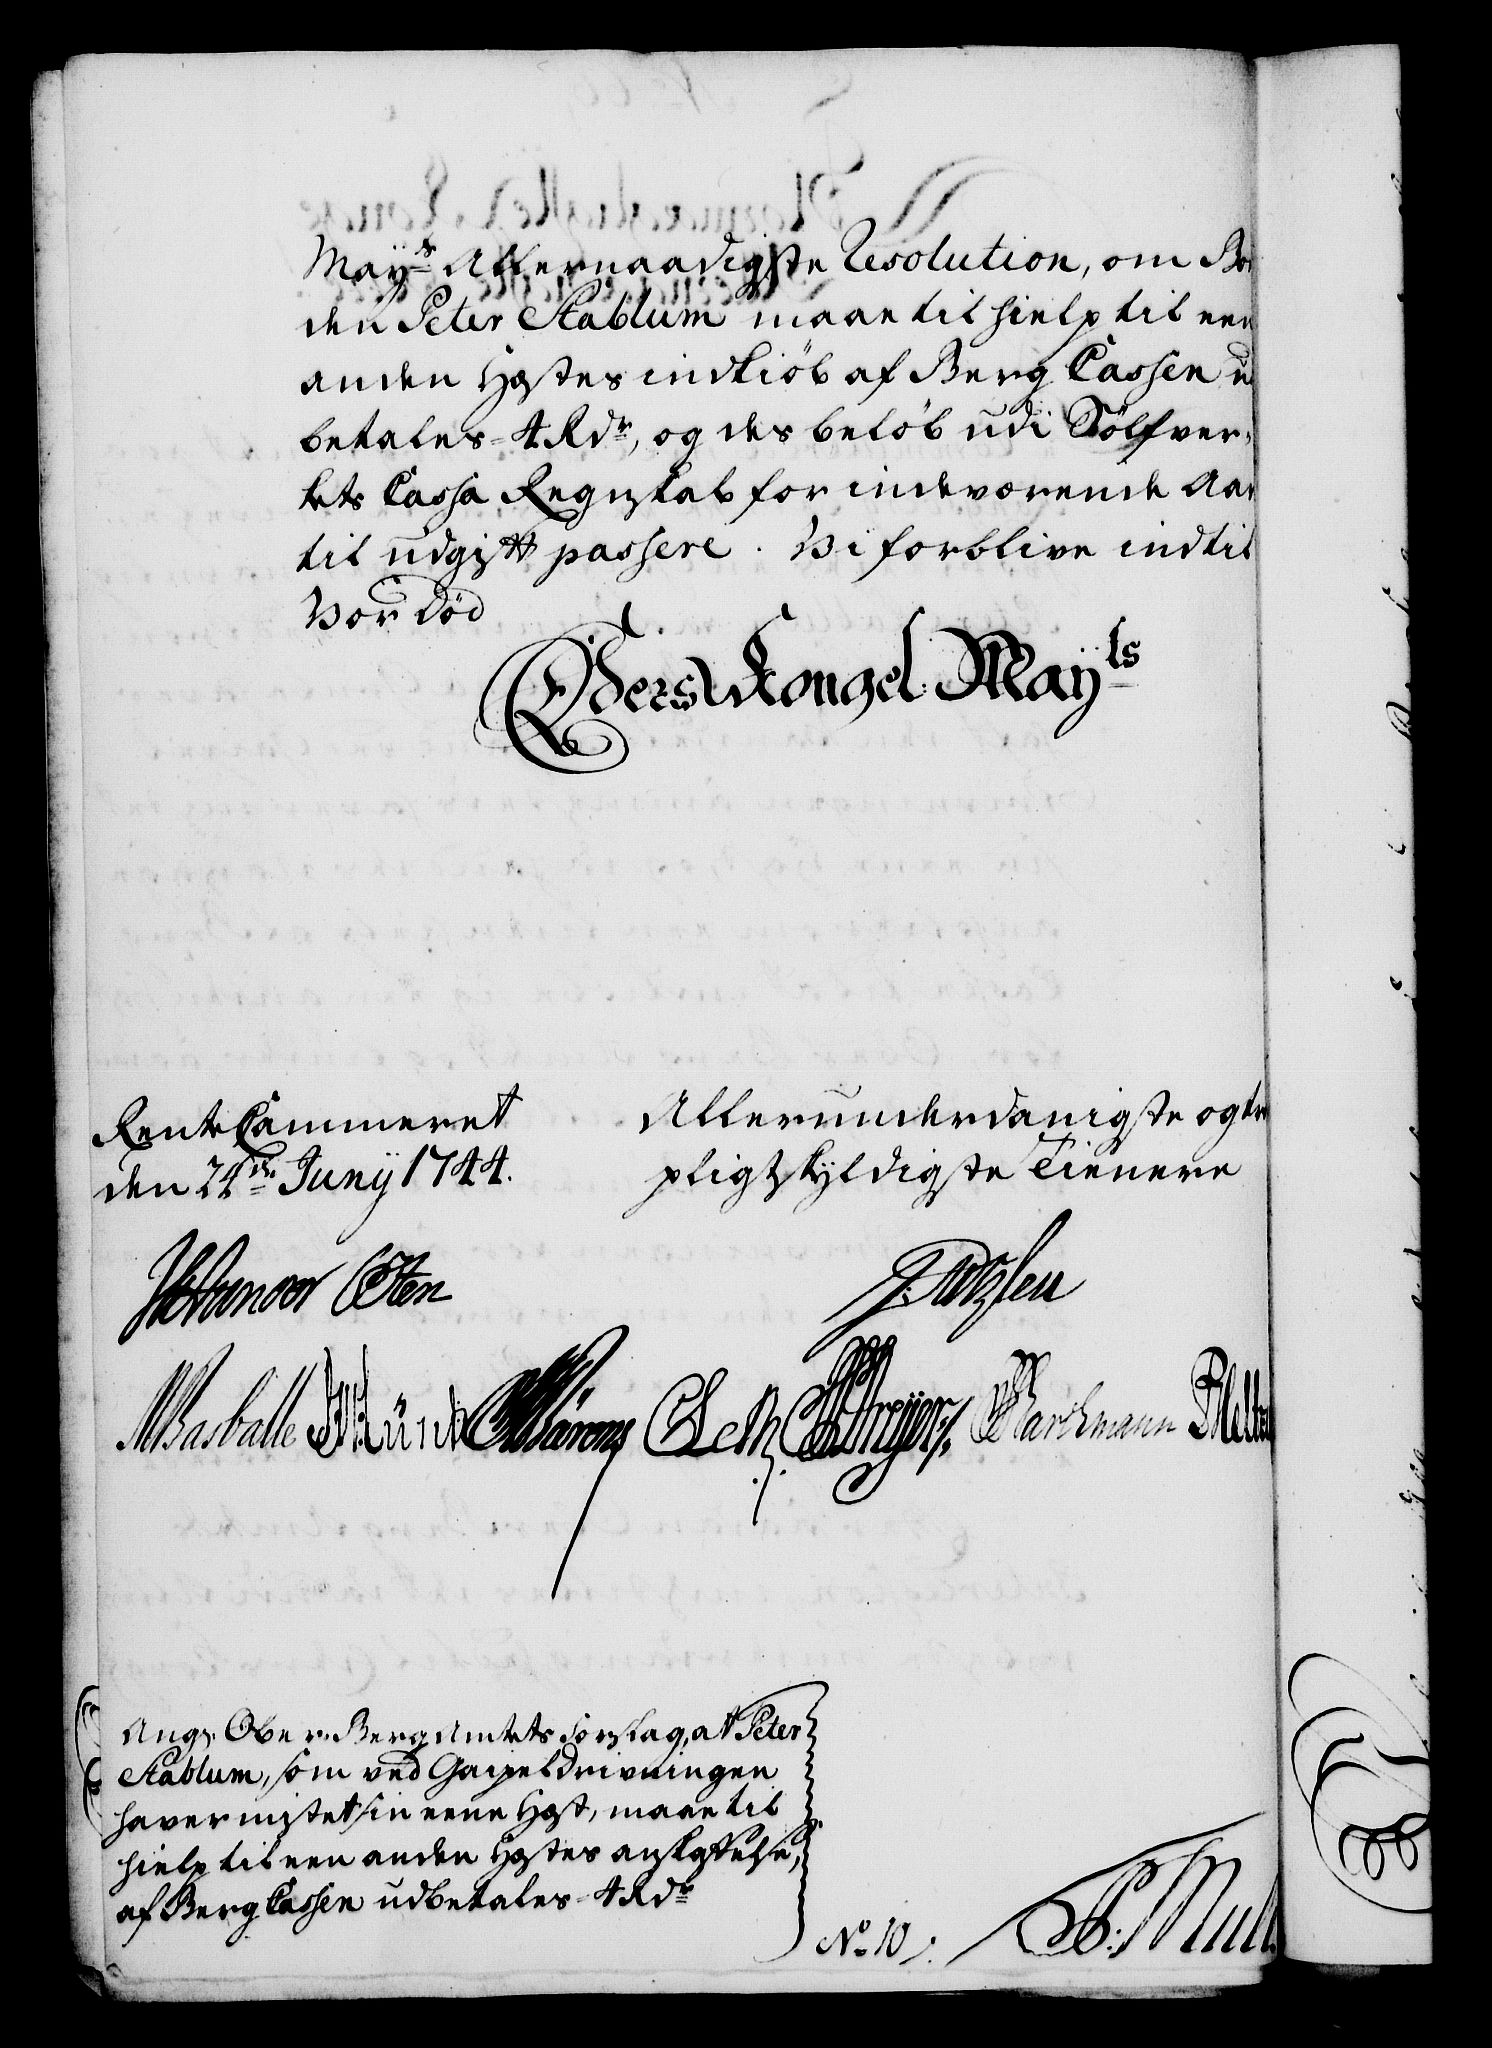 May.ts Allernaadigste Resolution, om Bon
den Peter Stablum maae til hielp til een
anden Hæstes indkiöb af Berg Cassen u
betales 4 Rdr, og des belöb udi Sölfver,
kets Cassa Regnskab for indeværende Aar
til udgift passere. Vi forblive indtil
Vor Död
Eders Kongel: May.ts
RenteCammeret
den 24de Junÿ 1744.
Allerunderdanigste og tro
pligtskyldigste Tienere
Basballe
Ang: Ober-BergAmtets Forslag, at Peter
Stablum, som ved Gaipeldrivningen
haver mistet sin eene Hæst, maae til
hielp til een anden Hæstes anskaffelse,
af Berg Cassen udbetales 4 Rdr
No. 10